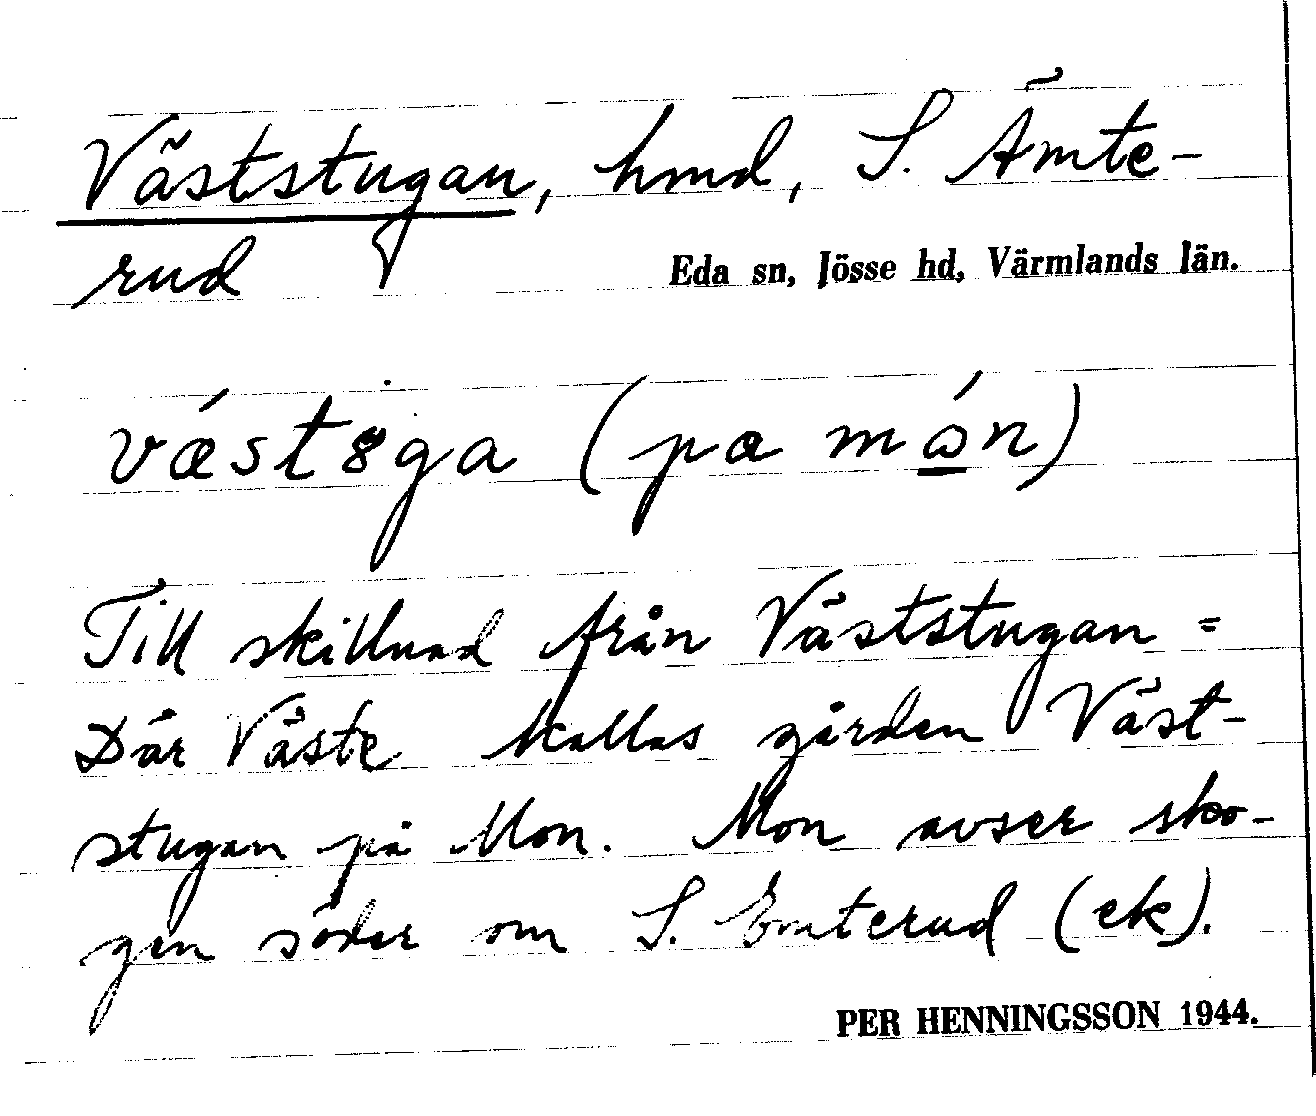 Väststugan, hmd, S. Ämte-
rud
Eda sn, Jösse hd, Värmlands län.
vǽst8ga (pa mǻn)
Till skillnad från Väststugan =
Där Väste kallas gården Väst-
stugan på Mon. Mon avser sko-
gen söder om S. Emterud (ek).
PER HENNINGSSON 1944.